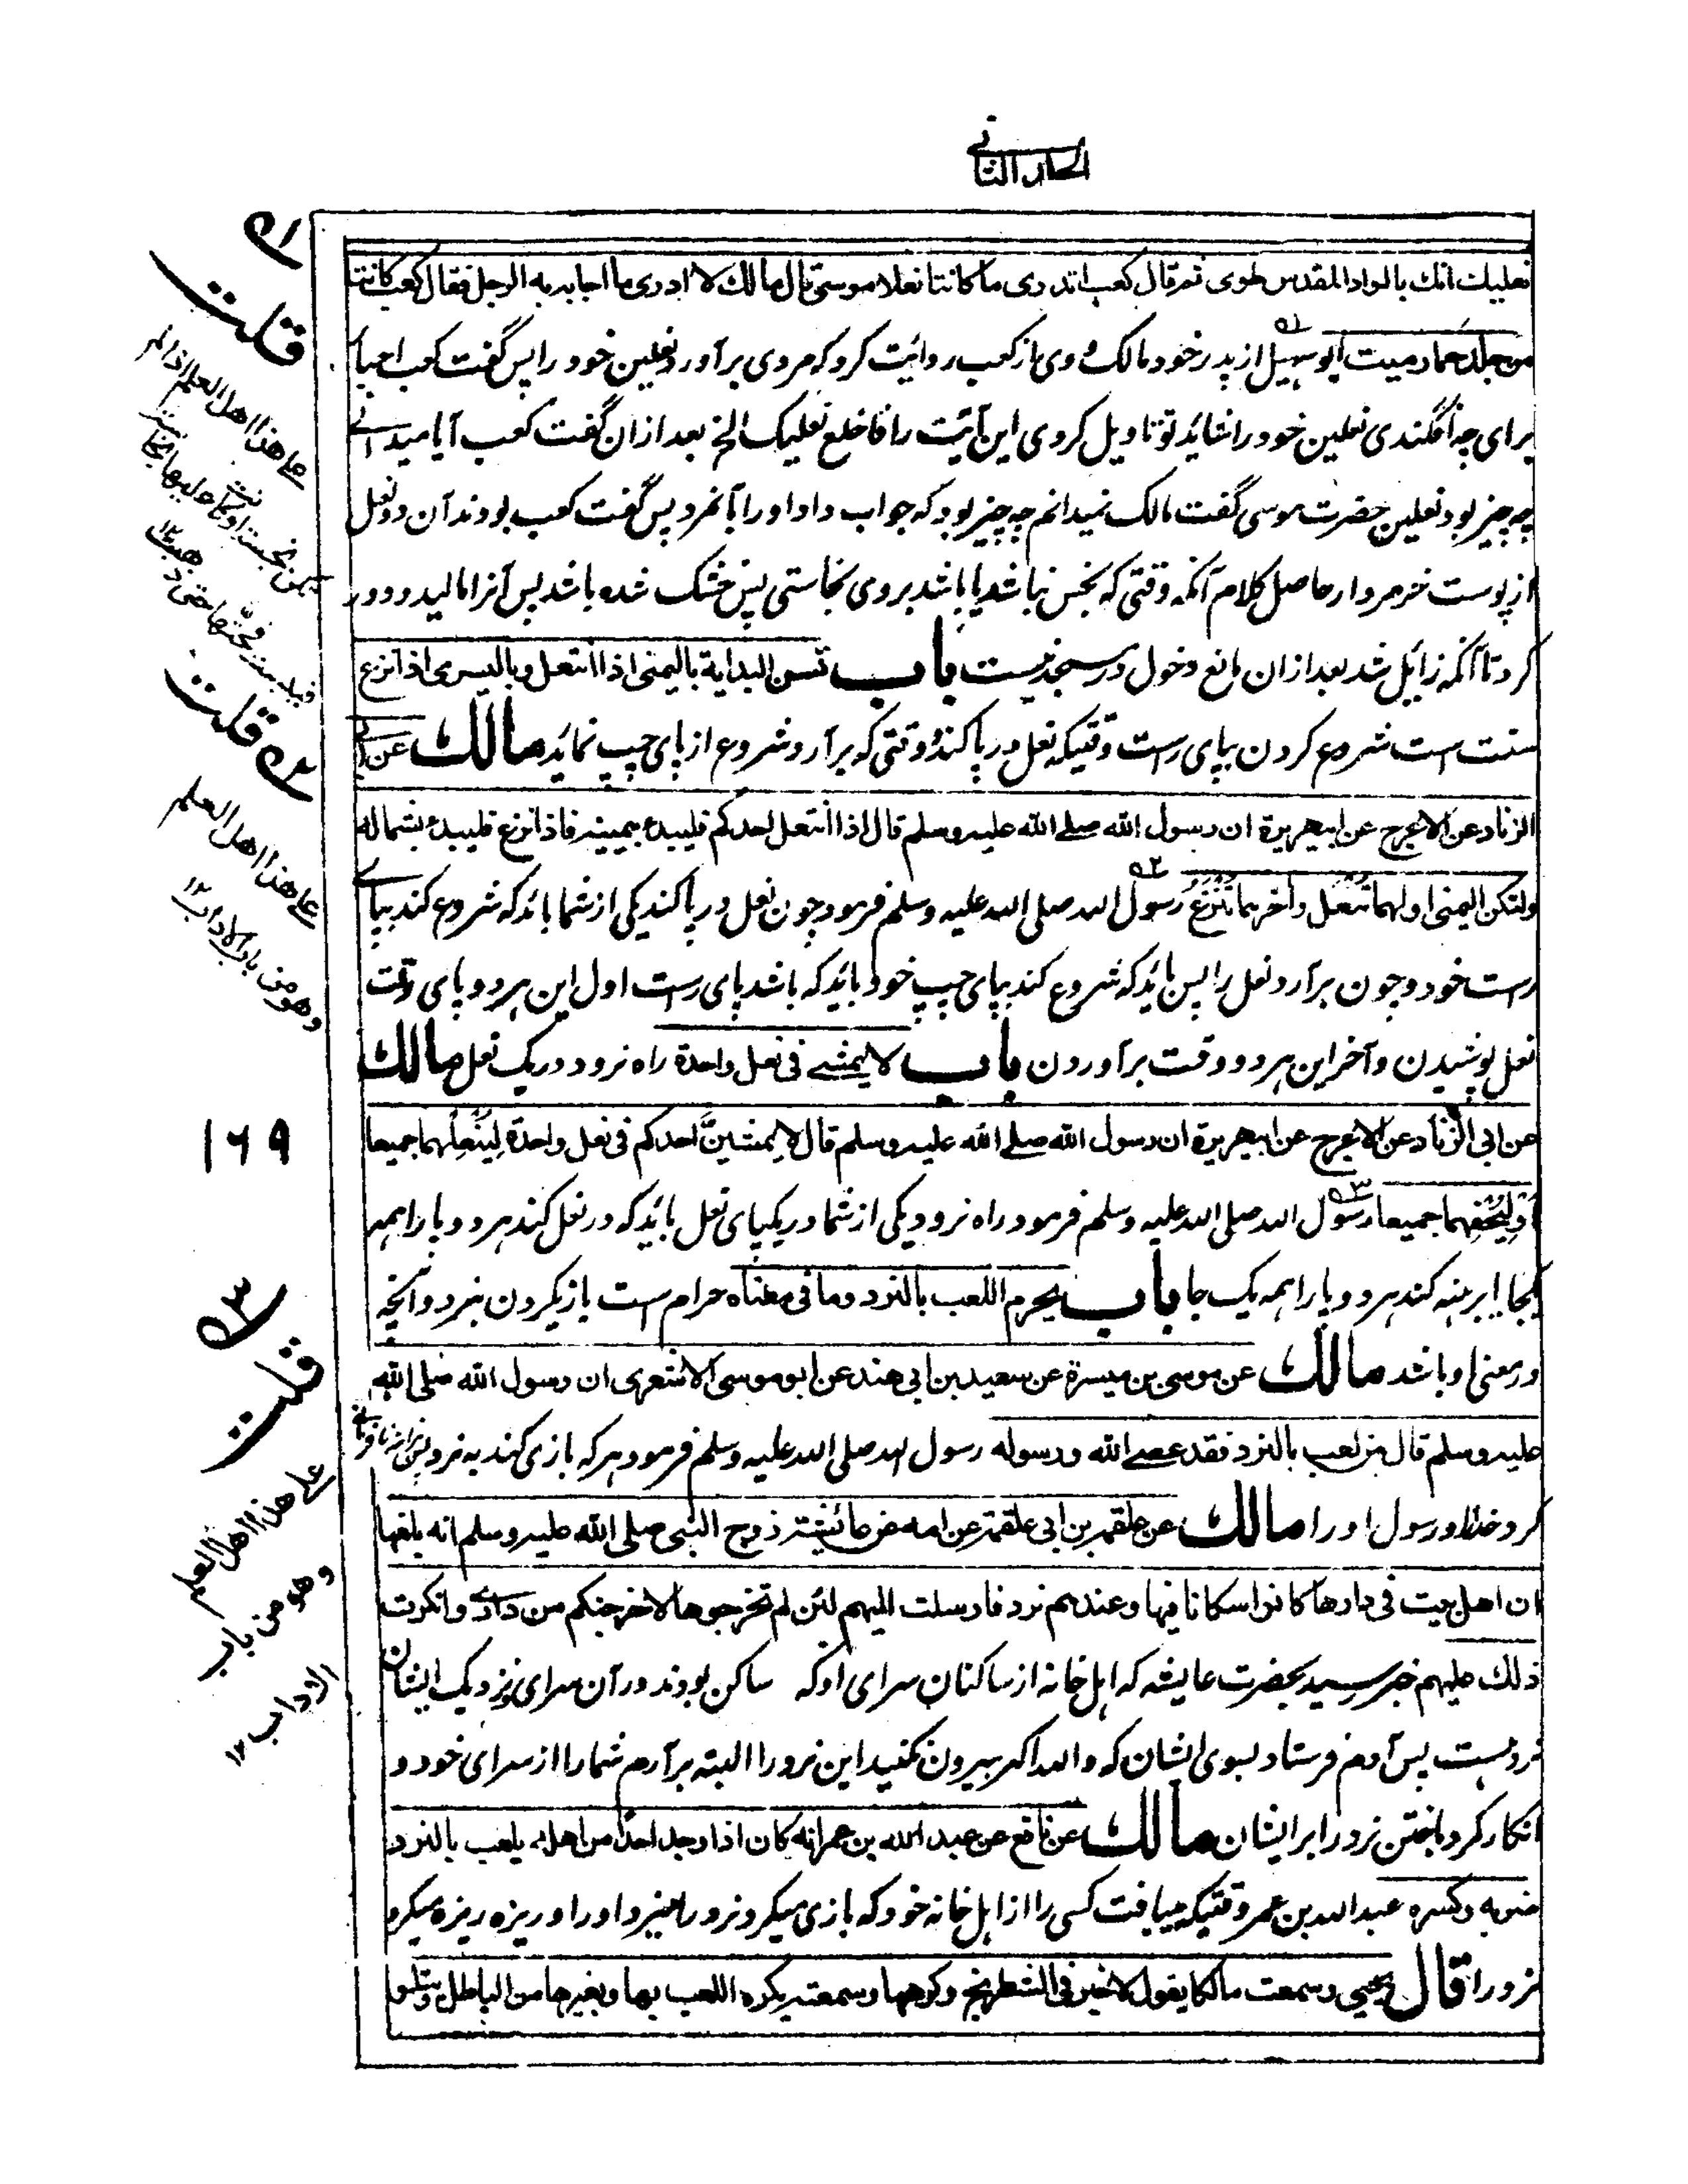 الجلد الثانی
نعلیك انك بالواد المقدس طوی ثم قال کعب اتدری ما کانتا نعلا موسی قال مالك لا ادری ما اجابه به الرجل فقال کعب کانتا
من جلد حمار میت ابو سهیل از پدر خود مالک و وی از کعب روائت کرد که مردی برآورد نعلین خود را پس گفت کعب احبار
برای چه افگندی نعلین خود را شاید تو تاویل کردی این آئیت را فاخلع نعلیک الخ بعد ازان گفت کعب آیا میدانی
چه چیز بود نعلین حضرت موسی گفت مالک نمیدانم چه چیز بود که جواب داد او را آنمرد پس گفت کعب بودند آن دو نعل
از پوست خر مردار حاصل کلام آنکه وقتی که نجس نباشد یا باشد بروی نجاستی پس خشک شده باشد پس آنرا مالید و دور
کرد تا آنکه زائل شد بعد ازان مانع دخول در مسجد نیست باب تسن البدایة بالیمنی اذا انتعل وبالیسری اذا نزع
سنت است شروع کردن بپای راست وقتیکه نعل در پا کند و وقتی که برآرد شروع از پای چپ نماید مالك عن ابی
الزناد عن الاعرج عن ابیهریرة ان رسول الله صلے الله علیه وسلم قال اذا انتعل احدکم فلیبدء بیمینه فاذا نزع فلیبدء بشماله
ولتکن الیمنی اولهما تُنعَل وآخرهما تُنزَعُ رسول الله صلی الله علیه وسلم فرمود چون نعل در پا کند یکی از شما باید که شروع کند بپای
راست خود و چون برآرد نعل را پس باید که شروع کند بپای چپ خود باید که باشد پای راست اول این هر دو پای وقت
نعل پوشیدن و آخر این هر دو وقت برآوردن باب لا یمشے فی نعل واحدة راه نرود در یک نعل مالك
عن ابی الزناد عن الاعرج عن ابیهریرة ان رسول الله صلے الله علیه وسلم قال لا یمشینَّ احدکم فی نعل واحدة لِیُنعِلْهما جمیعا
اَو لِیُحْفِهما جمیعا رسول الله صلی الله علیه وسلم فرمود راه نرود یکی از شما در یکپای نعل باید که در نعل کند هر دو پا را همه
یکجا یا برهنه کند هر دو پا را همه یک جا باب یحرم اللعب بالنرد وما فی معناه حرام است بازی کردن بنرد و آنچه
در معنی او باشد مالك عن موسی بن میسرة عن سعید بن ابی هند عن ابو موسی الاشعری ان رسول الله صلی الله
علیه وسلم قال من لعب بالنرد فقد عصے الله ورسوله رسول الله صلی الله علیه وسلم فرمود هر که بازی کند به نرد پس هرآئینه نافرمانی
کرد خدا و رسول او را مالك عن علقمة بن ابی علقمة عن امه عن عائشة زوج النبی صلی الله علیه وسلم انه بلغها
ان اهل بیت فی دارها کانوا سکانا فیها وعندهم نرد فارسلت الیهم لئن لم تخرجوها لاخرجنکم من داری وانکرت
ذلك علیهم خبر رسید بحضرت عایشه که اهل خانه از ساکنان سرای او که ساکن بودند در آن سرای نزدیک ایشان
نرد هست پس آدم فرستاد بسوی ایشان که والله اگر بیرون نکنید این نرد را البته برآرم شما را از سرای خود و
انکار کرد باختن نرد را بر ایشان مالك عن نافع عن عبد الله بن عمر انه کان اذا وجد احدا من اهله یلعب بالنرد
ضربه وکسره عبدالله بن عمر وقتیکه مییافت کسی را از اهل خانه خود که بازی میکرد نرد را میزد او را و ریزه ریزه میکرد
نرد را قال یحیی وسمعت مالکا یقول لا خیر فی الشطرنج وکرهها وسمعته یکره اللعب بها وبغیرها من الباطل ویتلو
۱ قلت
علی هذا اهل العلم اذا لم
۲ قلت
علی هذا اهل العلم
وهو من باب الاداب ۱۲
۱۶۹
۳ قلت
علی هذا اهل العلم
وهو من باب
الاداب ۱۲